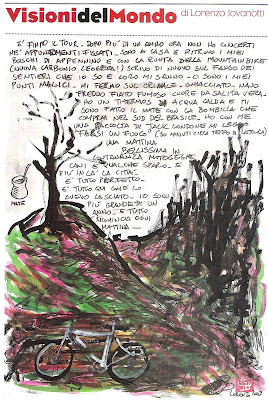 VisionidelMondo di Lorenzo Jovanotti
E' FINITO IL TOUR. DOPO PIU' DI UN ANNO ORA NON HO CONCERTI
NE' APPUNTAMENTI FISSATI. SONO A CASA E RITROVO I MIEI
BOSCHI DI APPENNINO E CON LA RUOTA DELLA MOUNTAINBIKE
(NUOVA CARBONIO LEGGERA!) SCRIVO DI NUOVO SUL FANGO DEI
SENTIERI CHE IO SO E LORO MI SANNO. CI SONO I MIEI
PUNTI MAGICI. MI FERMO SUL CRINALE. GHIACCIATO. NASO
FREDDO FIATO FUMOSO CUORE DA SALITA VERA.
HO UN THERMOS DI ACQUA CALDA E MI
SONO FATTO IL MATE CON LA BOMBILLA CHE
COMPRAI NEL SUD DEL BRASILE. HO CON ME
UNA RACCOLTA DI JACK LONDON E MI LEGGO
FARSI UN FUOCO (20 MINUTI CIRCA TEMPO DI LETTURA)
UNA MATTINA
BELLISSIMA IN
LONTANANZA MOTOSEGHE
CANI E QUALCHE SPARO. E
PIU' IN LA' LA CITTA'
E' TUTTO PERFETTO.
E' TUTTO QUI COME LO
AVEVO LASCIATO. IO SONO
PIU' GRANDE DI UN
ANNO. E TUTTO
RICOMINCIA OGNI
MATTINA
MATE